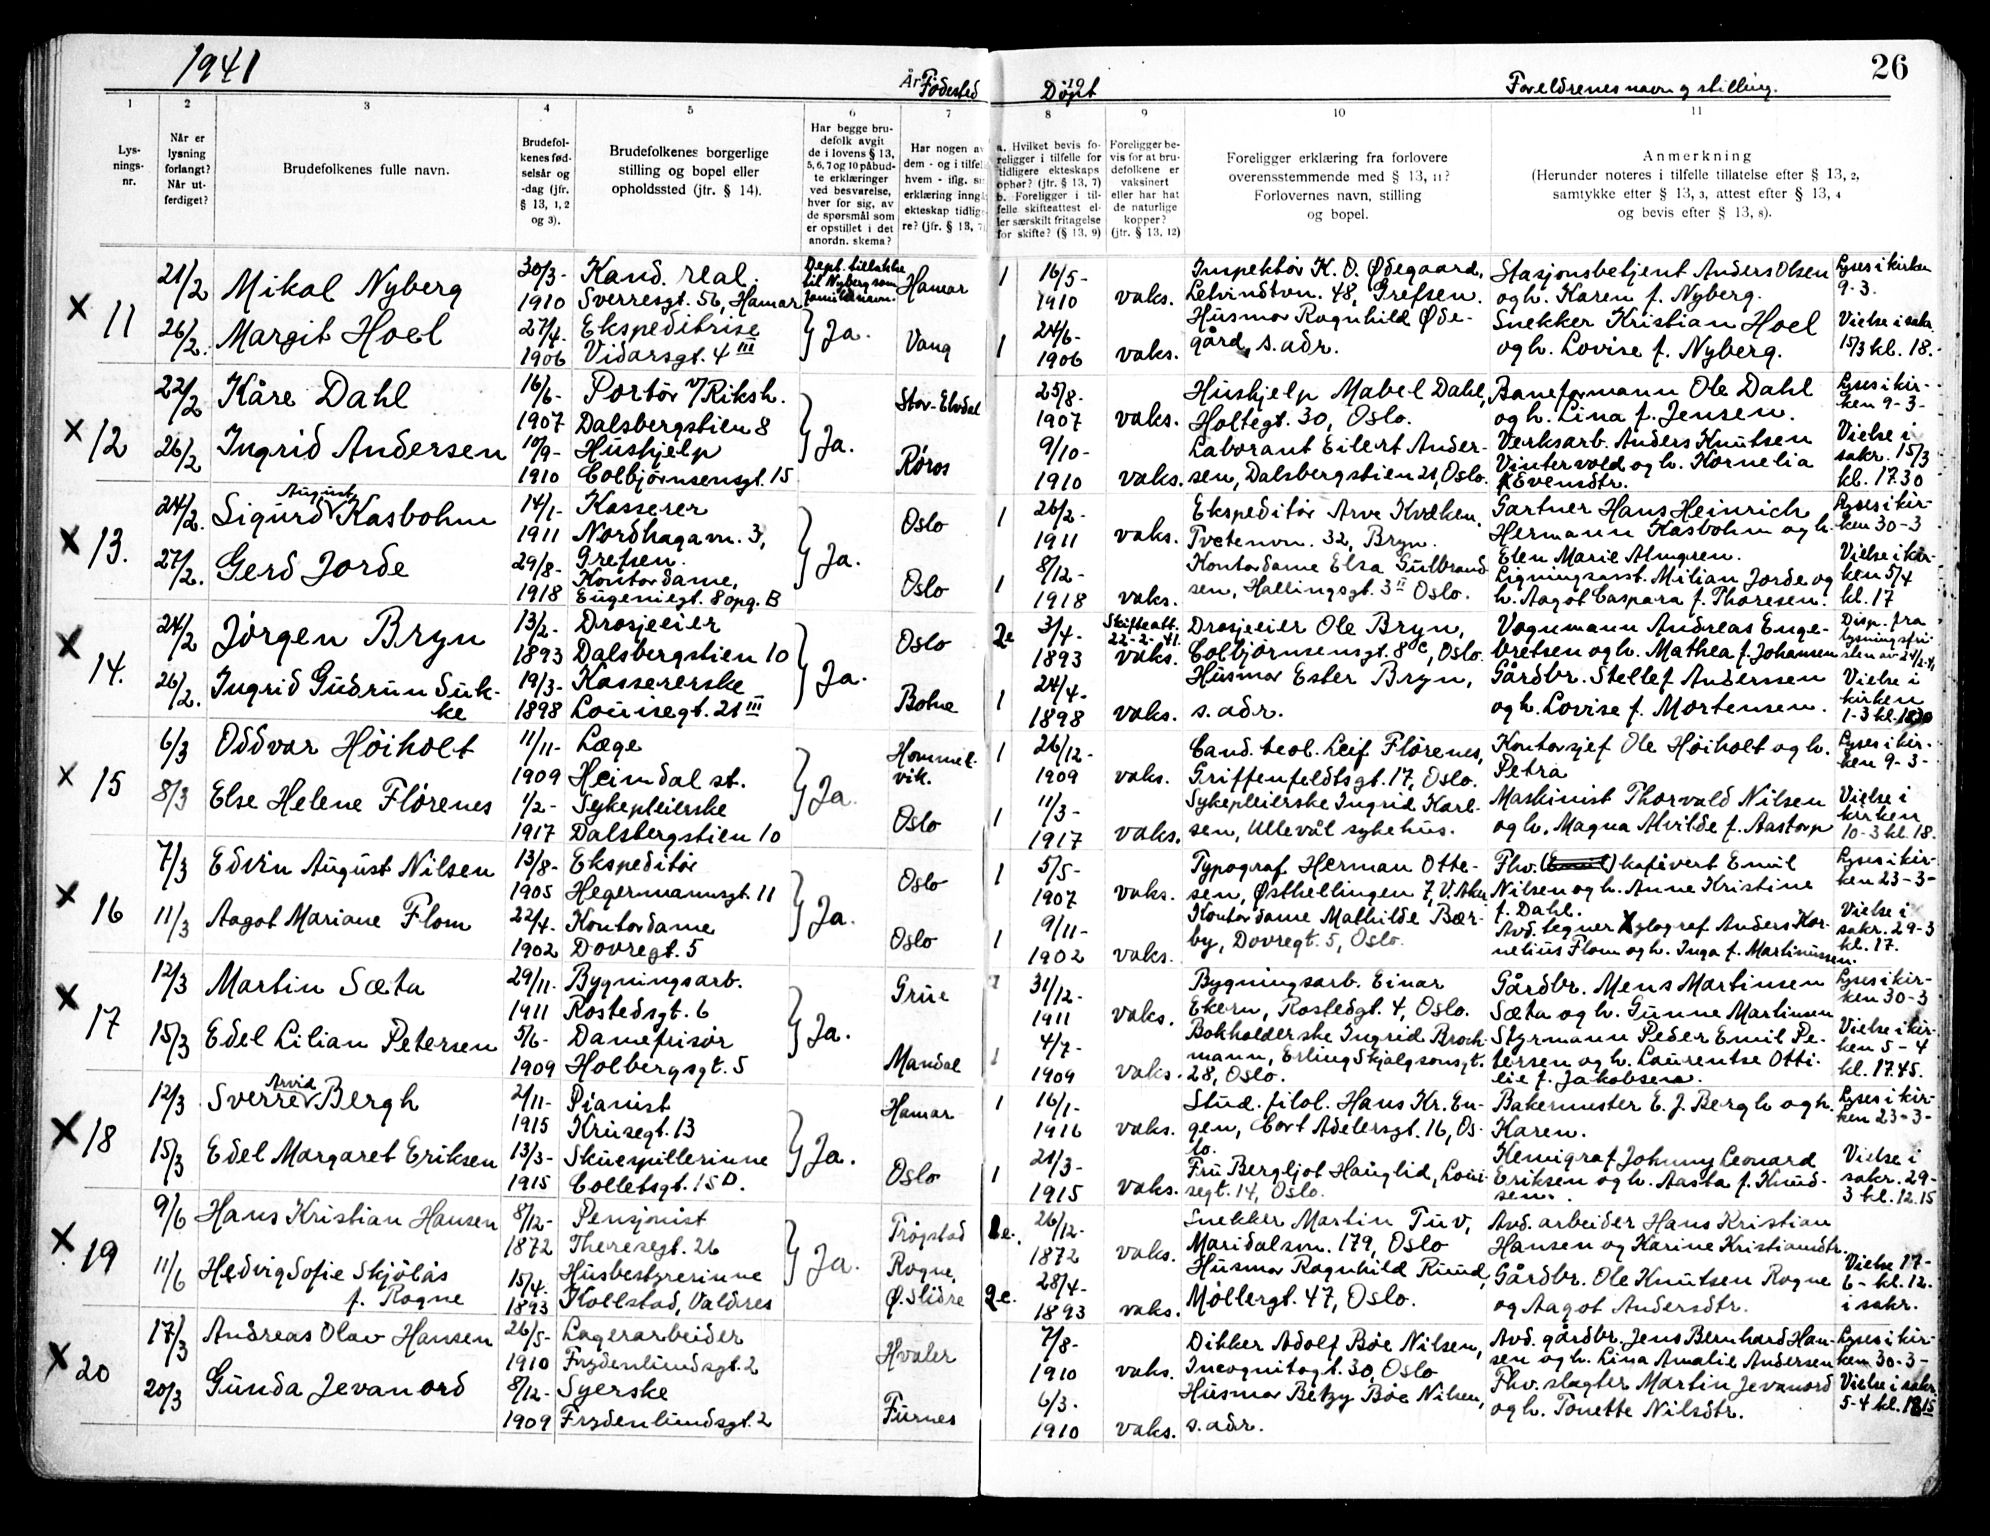 1941
År Fødested
1
2
3
4
5
6
7
Lys-
nings-
nr.
Når er
lysning
forlangt?
Når ut-
ferdiget?
Brudefolkenes fulle navn.
Brudefol-
kenes fød-
selsår og
-dag (jfr.
§ 13, 1, 2
og 3).
Brudefolkenes borgerlige
stilling og bopel eller
opholdssted (jfr. § 14).
Har begge bru-
defolk avgit
de i lovens § 13,
5, 6, 7 og 10 påbud-
te erklæringer
ved besvarelse,
hver for sig, av
de spørsmål som
er opstillet i det
anordn. skema?
Har nogen a
dem - og i tilfel
hvem - iflg. s
erklæring inngå
ekteskap tidlig
re? (jfr. § 13, 7
x 11
21/2 Mikal Nyberg
30/3- 1910
Kand. real.
Sverresgt. 56, Hamar
Dept. tillatelse
til Nyberg som
familienavn.
Hamar
26/2. Margit Hoel
27/4. 1906
Ekspeditrise
Vidarsgt. 4 III
} Ja.
Vang
x 12
22/2 Kåre Dahl
16/6- 1907
Portør v/Riksh.
Dalsbergstien 8
Stor-Elvdal
26/2 Ingrid Andersen
10/9- 1910
Hushjelp
Colbjørnsensgt. 15
} Ja.
Røros
x 13.
24/2. Sigurd August Kasbohm
14/1- 1911
Kasserer
Nordhagavn. 3,
Grefsen.
Oslo
27/2. Gerd Jorde
29/8- 1918
Kontordame,
Eugeniegt. 8 opg. B
} Ja.
Oslo
x 14.
24/2 Jørgen Bryn
13/2- 1893
Drosjeeier
Dalsbergstien 10
Oslo
26/2. Ingrid Gudrun Suk-
ke
19/3- 1898
Kassererske
Louisegt. 21 III
} Ja.
Botne
x 15
6/3 Oddvar Høiholt
11/11- 1909
Læge
Heimdal st.
Hommel-
vik.
8/3 Else Helene Flörenes
1/2- 1917
Sykepleierske
Dalsbergstien 10
} Ja.
Oslo
x 16
7/3 Edvin August Nilsen
13/8- 1905
Ekspeditör
Hegermannsgt. 11
Oslo
11/3 Aagot Mariane Flom
22/4. 1902
Kontordame
Dovregt. 5
} Ja.
Oslo
x 17
12/3 Martin Sæta
29/11- 1911
Bygningsarb.
Rostedsgt. 6
Grue
15/3 Edel Lilian Petersen
5/6- 1909
Damefrisör
Holbergsgt. 5
} Ja.
Mandal
x 18
12/3 Sverre Arvid Bergh
2/11- 1915
Pianist
Krusegt. 13
Hamar
15/3 Edel Margaret Eriksen
13/3- 1915
Skuespillerinne
Colletsgt. 15 D.
} Ja.
Oslo
x 19
9/6 Hans Kristian Hansen
8/12- 1872
Pensjonist
Theresegt. 26
Trøgstad
11/6 Hedvig Sofie Skjölås
f. Rogne
15/4. 1893
Husbestyrerinne
Kollstad, Valdres
} Ja.
Rogne,
Ø. Slidre
x 20
17/3 Andreas Olav Hansen
26/5- 1910
Lagerarbeider
Frydenlundsgt. 2
Hvaler
20/3 Gunda Jevanord
8/12- 1909
Syerske
Frydenlundsgt. 2
Furnes
19 Døpt
Foreldrenes navn og stilling.
26
8
9
10
11
a. Hvilket bevis fo-
religger i tilfelle for
tidligere ekteskaps
ophør? (jfr. § 13, 7)
b. Foreligger i til-
felle skifteattest el-
ler særskilt fritagelse
for skifte? (§ 13, 9)
Foreligger be-
vis for at bru-
defolkene er
vaksinert
eller har hat
de naturlige
kopper?
(jfr. § 13, 12)
Foreligger erklæring fra forlovere
overensstemmende med § 13, 11?
Forlovernes navn, stilling
og bopel.
Anmerkning
(Herunder noteres i tilfelle tillatelse efter § 13, 2,
samtykke efter § 13, 3, attest efter § 13, 4
og bevis efter § 13, 8).
1 16/5- 1910 vaks.
Inspektör K. O. Ødegaard,
Letvindtvn. 48, Grefsen.
Stasjonsbetjent Anders Olsen
og h. Karen f. Nyberg.
Lyses i kirken
9-3.
1 24/6- 1906 vaks.
Husmor Ragnhild Øde-
gård, s. adr.
Snekker Kristian Hoel
og h. Lovise f. Nyberg.
Vielse i sakr.
15/3 kl. 18.
25/8- 1907 vaks.
Hushjelp Mabel Dahl,
Holtegt. 30, Oslo.
Baneformann Ole Dahl
og h. Lina f. Jensen.
Lyses i kir-
ken 9-3-
9/10- 1910 vaks.
Laborant Eilert Ander-
sen, Dalsbergstien 21, Oslo.
Verksarb. Anders Knutsen
Vintervold og h. Kornelia
Evensdtr.
Vielse i
sakr. 15/3
kl. 17.30
1 26/2- 1911 vaks.
Ekspeditör Arve Kvæken,
Tvetenvn. 32, Bryn.
Gartner Hans Heinrich
Hermann Kasbohm og h.
Elen Marie Almgren.
Lyses i kir-
ken 30-3
1 8/12- 1918 vaks.
Kontordame Elsa Gulbrand
sen, Hallingsgt. 3 II Oslo.
Ligningsasst. Milian Jorde og
h. Aagot Caspara f. Thoresen.
Vielse i kir-
ken 5/4
kl. 17
2e 3/4- 1893
Skifteatt.
22-2-41.
vaks.
Drosjeeier Ole Bryn,
Colbjørnsensgt. 8c, Oslo.
Vognmann Andreas Enge-
bretsen og h. Mathea f. Johansen
Disp. fra
lysningsfri-
sten av 24/2-41
1 24/4- 1898 vaks.
Husmor Ester Bryn,
s. adr.
Gårdbr. Stellef Anderssen
og h. Lovise f. Mortensen.
Vielse i
kirken
1-3 kl. 18.30
1 26/12- 1909 vaks.
Cand. teol. Leif Flörenes,
Griffenfeldtsgt. 17, Oslo.
Kontorsjef Ole Høiholt og h.
Petra
Lyses i kir-
ken 9-3-
1 11/3- 1917 vaks.
Sykepleierske Ingrid Karl-
sen, Ullevål sykehus.
Maskinist Thorvald Nilsen
og h. Magna Alvilde f. Aastorp
Vielse i
kirken
10-3 kl. 18.
1 5/5- 1907 vaks.
Typograf Herman Otte-
sen, Østhellingen 7, V. Aker
Fhv. (Emil) kafévert Emil
Nilsen og h. Anne Kristine
f. Dahl.
Lyses i kir-
ken 23-3-
1 9/11- 1902 vaks.
Kontordame Mathilde Bær-
by, Dovregt. 5, Oslo.
Avd. tegner Xylograf Anders Kor-
nelius Flom og h. Inga f. Martinussen.
Vielse i
sakr. 29-3
kl. 17.
1 31/12- 1911 vaks.
Bygningsarb. Einar
Ekern, Rostedsgt. 4, Oslo.
Gårdbr. Mens Martinsen
Sæta og h. Gunne Martinsen
Lyses i kir-
ken 30-3
1 4/7- 1909 vaks.
Bokholderske Ingrid Broch-
mann, Erling Skjalgsonsgt.
28, Oslo.
Styrmann Peder Emil Pe-
tersen og h. Laurentse Otti-
lie f. Jakobsen.
Vielse i kir-
ken 5-4
kl. 17.45.
1 16/1- 1916 vaks.
Stud. filol. Hans Kr. En-
gen, Cort Adelersgt. 16, Os-
lo.
Bakermester E. J. Bergh og h.
Karen.
Lyses i kir-
ken 23-3-
1 21/3- 1915 vaks.
Fru Bergljot Hauglid, Loui-
segt. 14, Oslo.
Kemigraf Johnny Leonard
Eriksen og h. Aasta f. Knud-
sen.
Vielse i
sakr. 29-
3 kl. 12.15
2e. 26/12- 1872 vaks.
Snekker Martin Tuv,
Maridalsvn. 179, Oslo
Avd. arbeider Hans Kristian
Hansen og Karine Kristiansdtr.
2e. 28/4- 1893 vaks.
Husmor Ragnhild Ruud,
Møllergt. 47, Oslo.
Gårdbr. Ole Knutsen Rogne
og Aagot Andersdtr.
Vielse 17-
6- kl. 12.
i sakr.
7/8- 1910 vaks.
Dikker Adolf Bøe Nilsen,
Incognitogt. 30, Oslo
Avd. gårdbr. Jens Bernhard Han-
sen og h. Lina Amalie Andersen
Lyses i kir-
ken 30-3-
6/3. 1910 vaks.
Husmor Betzy Bøe Nilsen,
s. adr.
Fhv. slagter Martin Jevanord
og h. Tonette Nilsdtr.
Vielse i sakr.
5-4 kl. 18 15